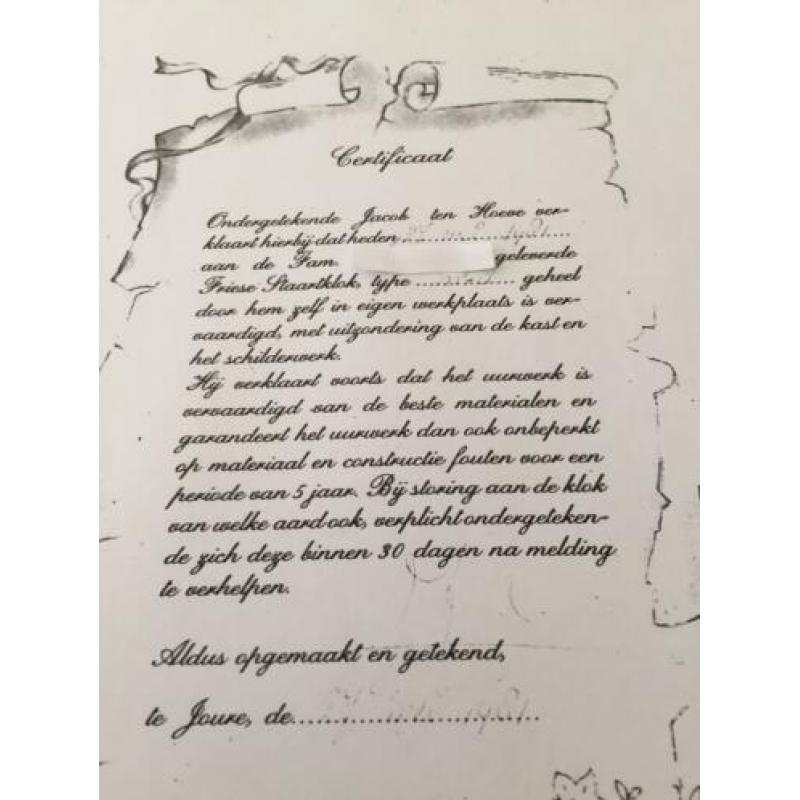 Certificaat
Ondergetekende Jacob ten Hoeve ver-
klaart hierbij dat heden ....................
aan de Fam. geleverde
Friese Staartklok, type ............... geheel
door hem zelf in eigen werkplaats is ver-
vaardigd, met uitzondering van de kast en
het schilderwerk.
Hij verklaart voorts dat het uurwerk is
vervaardigd van de beste materialen en
garandeert het uurwerk dan ook onbeperkt
op materiaal en constructie fouten voor een
periode van 5 jaar. Bij storing aan de klok
van welke aard ook, verplicht ondergeteken-
de zich deze binnen 30 dagen na melding
te verhelpen.
Aldus opgemaakt en getekend,
te Joure, de..............................